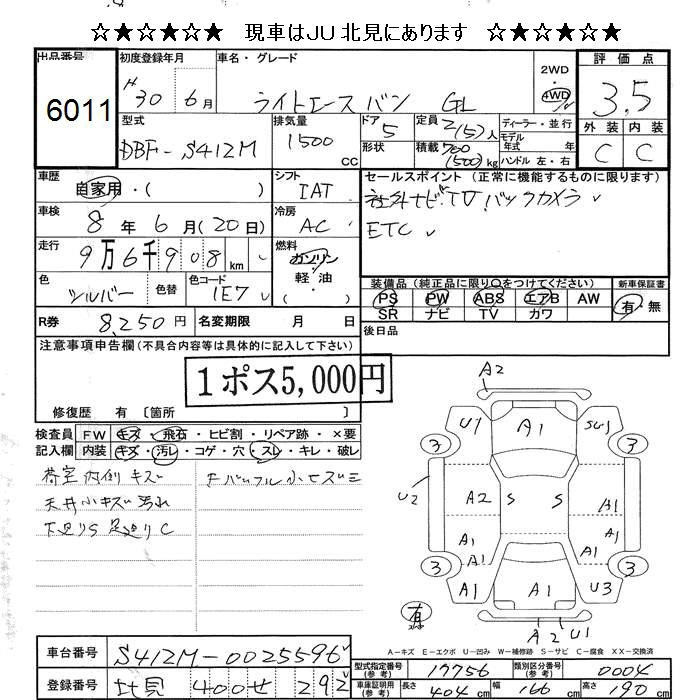 ☆★☆★☆★ 現車はJU北見にあります ☆★☆★☆★
出品番号 初度登録年月 車名・グレード 2WD 評価点
6011 H30 6月 ライトエースバン GL 4WD 3.5
型式 排気量 ドア 定員 ディーラー・並行 外装 内装
DBF-S412M 1500 CC 5 2(5)人 モデル年式 年 C C
形状 積載 700(500)kg ハンドル 左・右
車歴 自家用・( ) シフト IAT セールスポイント (正常に機能するものに限ります)
車検 8年 6月(20日) 冷房 AC 社外ナビ TV バックカメラ
走行 9万6千908km 燃料 ガソリン ETC
軽油
色 シルバー 色替 色コード 1E7 装備品(純正品に限り○をつけてください) 新車保証書
PS PW ABS エアB AW 有・無
R券 8,250円 名変期限 月 日 SR ナビ TV カワ
後日品
注意事項申告欄(不具合内容等は具体的に記入して下さい)
1ポス5,000円
修復歴 有〔箇所 〕
検査員 FW キズ・飛石・ヒビ割・リペア跡・×要
記入欄 内装 キズ・汚レ・コゲ・穴・スレ・キレ・破レ
荷室内側キズ
天井小キズ汚れ
下廻りS 足廻りC
A2
U1 A1 SU1
3 3
U2 A2 S S A1
A1 A1
A1
3 3
A1 A1 U3
有
A2 U1
A－キズ E－エクボ U－凹み W－補修跡 S－サビ C－腐食 XX－交換済
車台番号 S412M-0025596 型式指定番号(参考) 17756 類別区分番号(参考) 0004
登録番号 北見 400せ 292 車庫証明用(参考) 長さ 404cm 幅 166cm 高さ 190cm